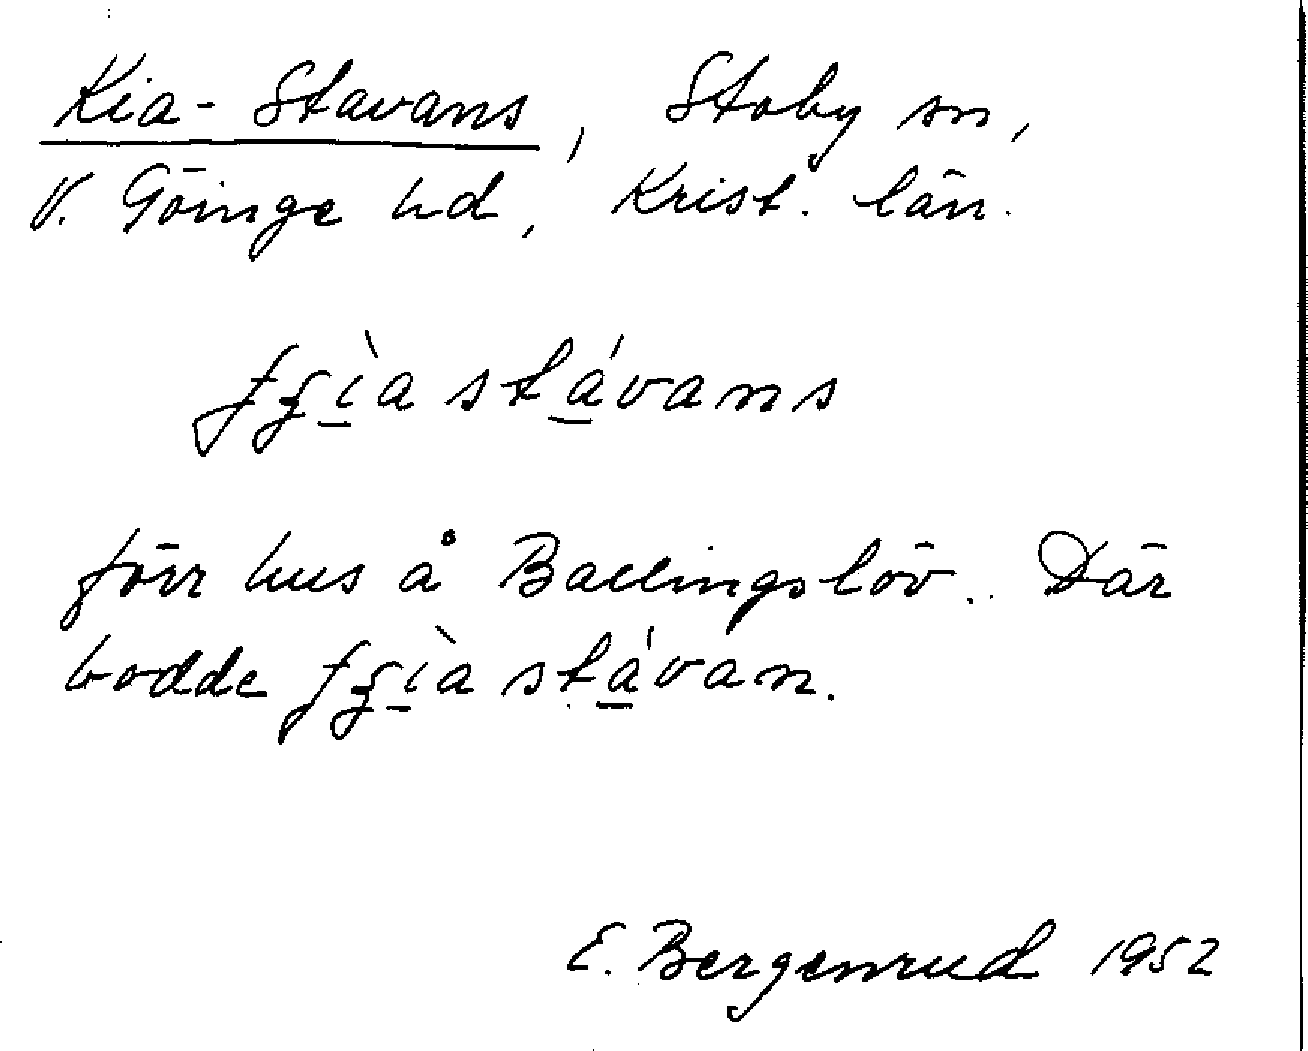 Kia-Stavans, Stoby sn,
V. Göinge hd, Krist. län.
stávans
förr hus å Ballingslöv. Där
bodde stávan.
E. Bergenrud 1952